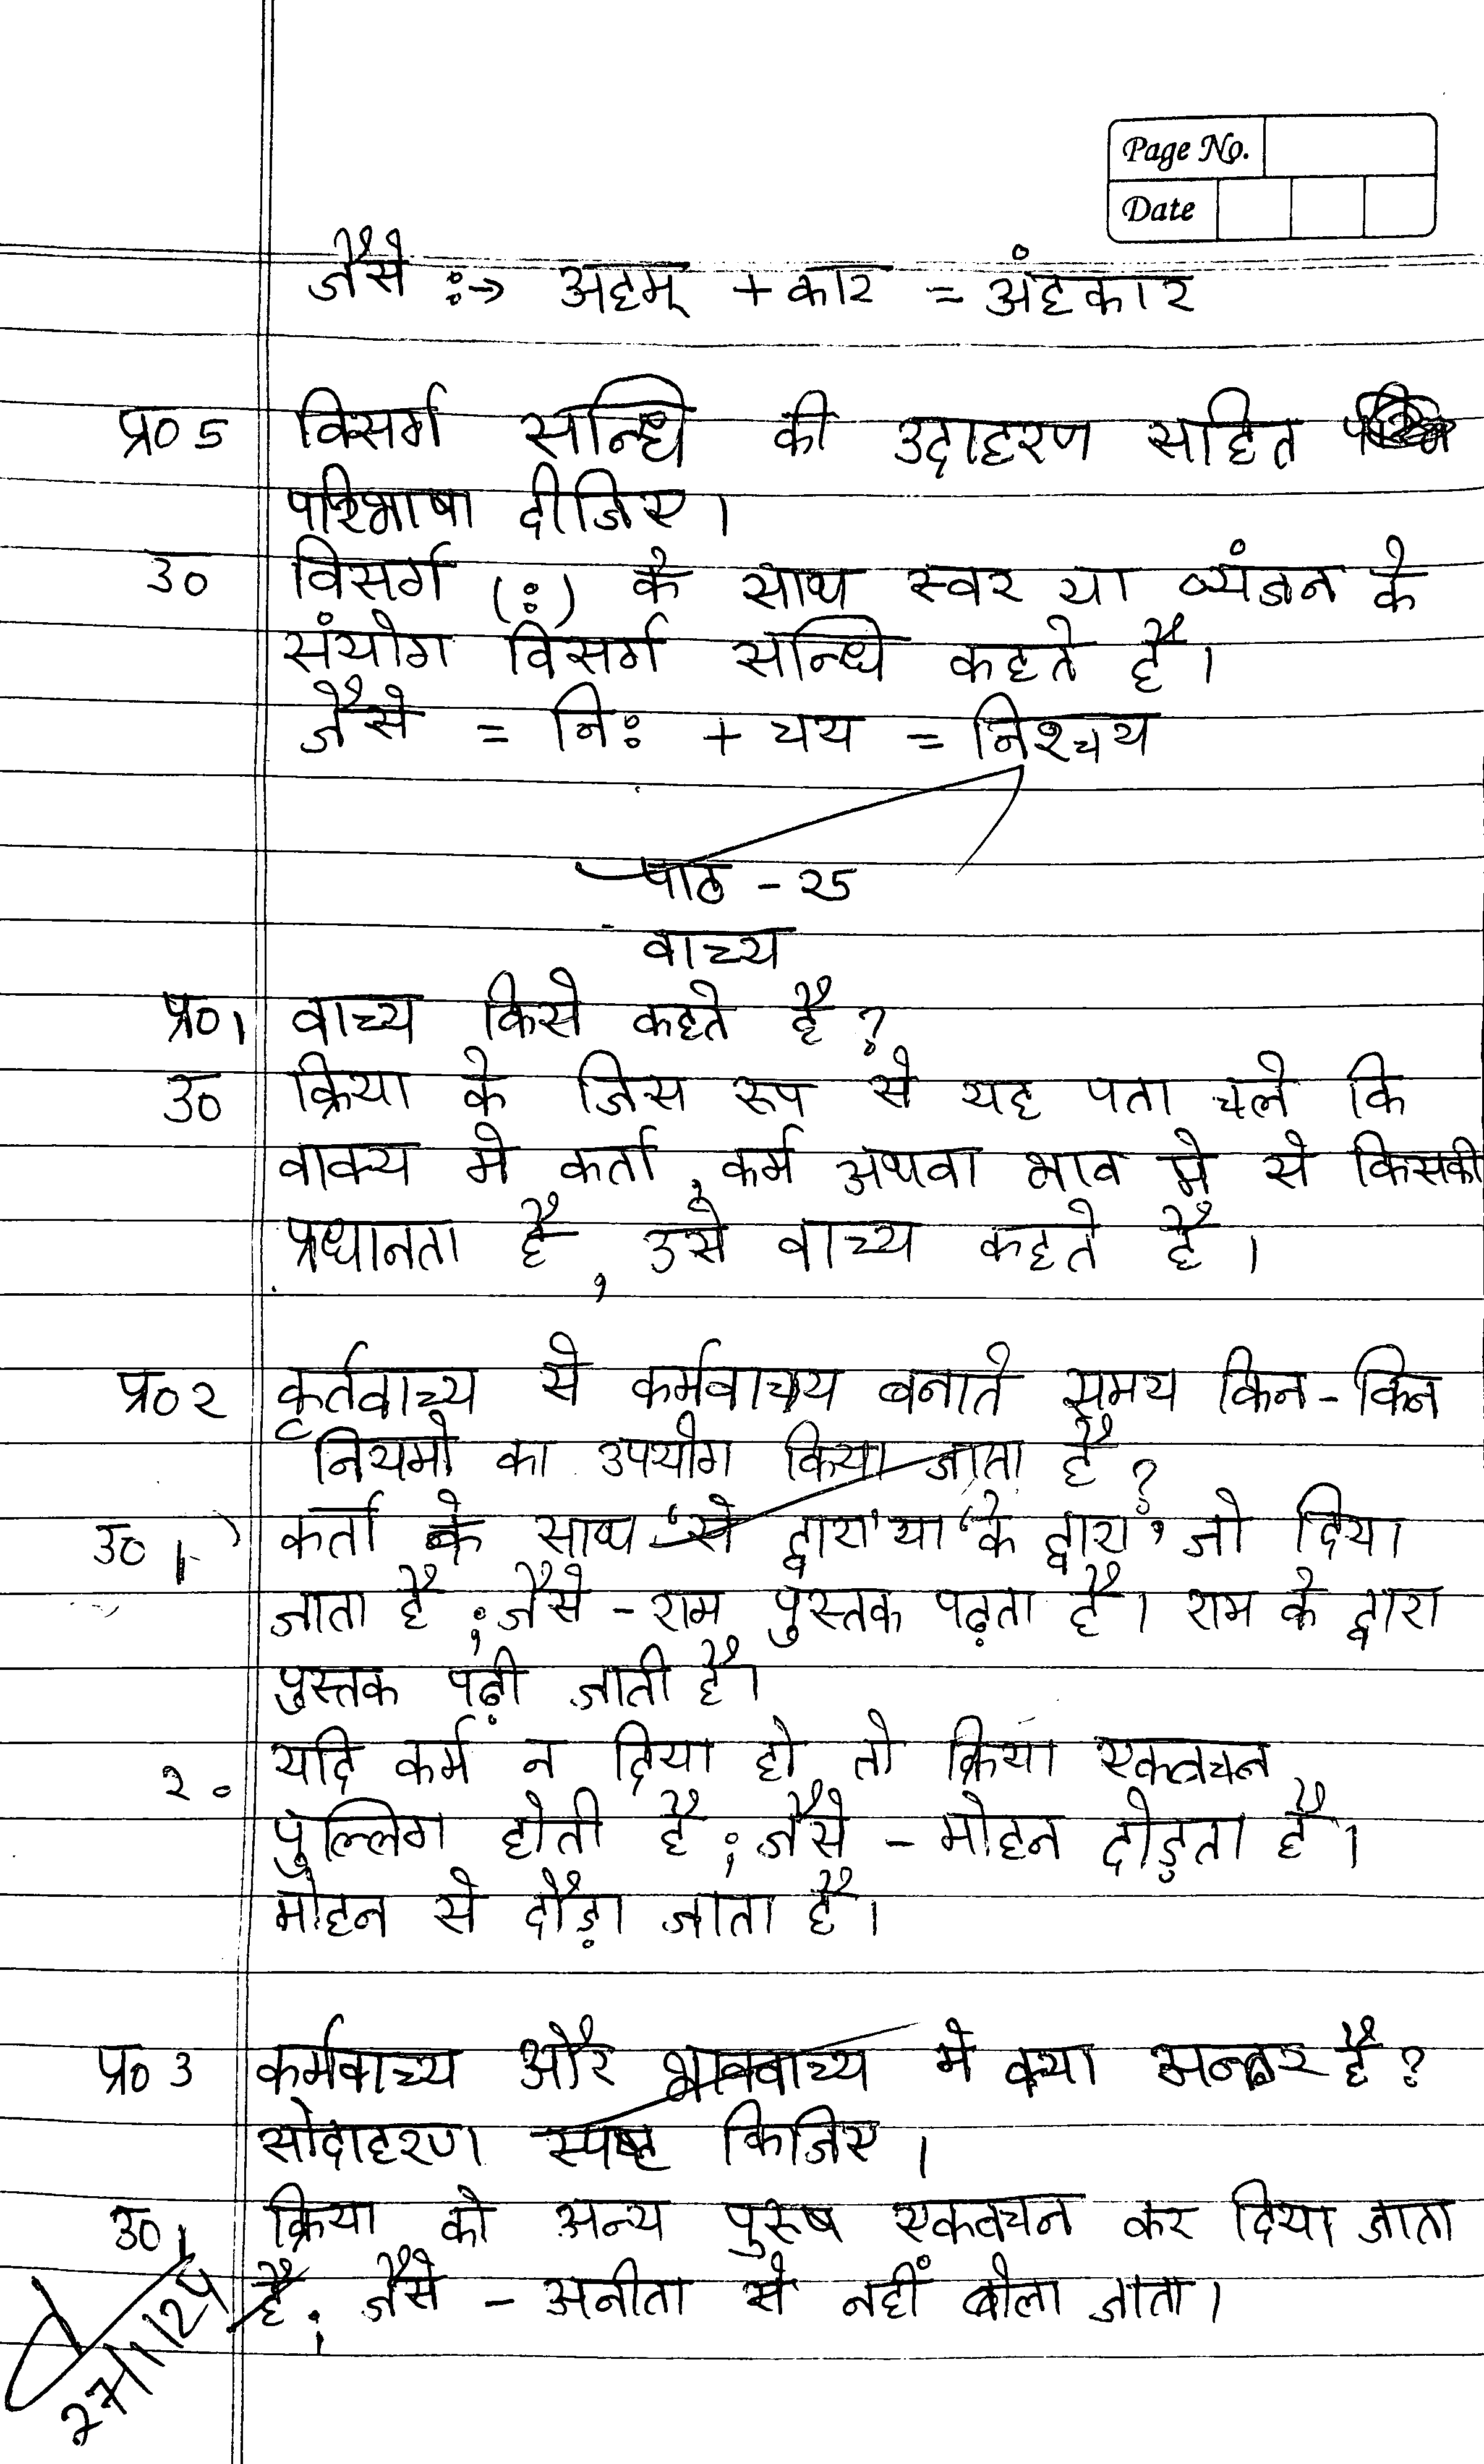 Page No.
Date
जैसे :→ अहम् + कार = अंहकार
प्र० 5 विसर्ग सन्धि की उद्दाहरण सहित
परिभाषा दीजिए।
उ० विसर्ग (:) के साथ स्वर या व्यंजन के
संयोग विसर्ग सन्धि कहते है।
जैसे = नि: + चय = निश्चय
पाठ - 25
वाच्य
प्र० 1 वाच्य किसे कहते है?
उ० क्रिया के जिस रूप से यह पता चले कि
वाक्य मे कर्ता, कर्म अथवा भाव मे से किसकी
प्रधानता है, उसे वाच्य कहते है।
प्र० २ कृर्तवाच्य से कर्मवाच्य बनाते समय किन - किन
नियमो का उपयोग किया जाता है?
उ० 1 कर्ता के साथ 'से द्वारा' या 'के द्वारा' जो दिया
जाता है; जैसे - राम पुस्तक पढ़ता है। राम के द्वारा
पुस्तक पढ़ी जाती है।
२. यदि कर्म न दिया हो तो क्रिया एकवचन
पुल्लिग होती है; जैसे - मोहन दोड़ता है।
मोहन से दौड़ा जाता है।
प्र० 3 कर्मवाच्य और भाववाच्य मे क्या अन्तर है?
सोदाहरण स्पष्ट किजिए।
उ० 1 क्रिया को अन्य पुरुष एकवचन कर दिया जाता
है; जैसे - अनीता से नहीं बोला जाता।
27/1/24